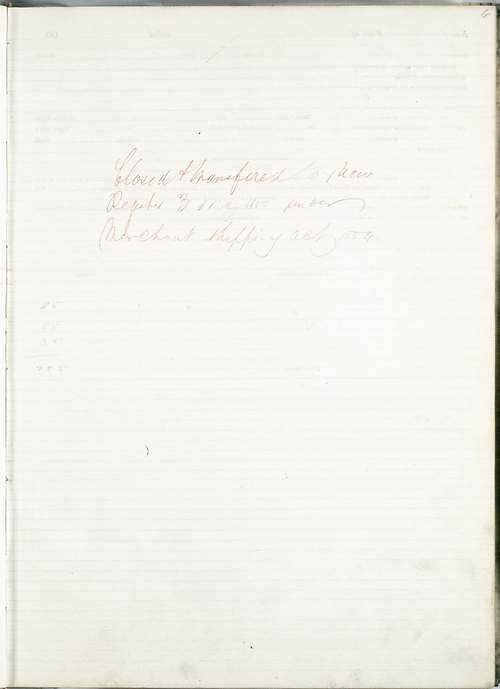 6
Closed & transfired to New
Register 3 May under
Merchant Shipping Act 1854